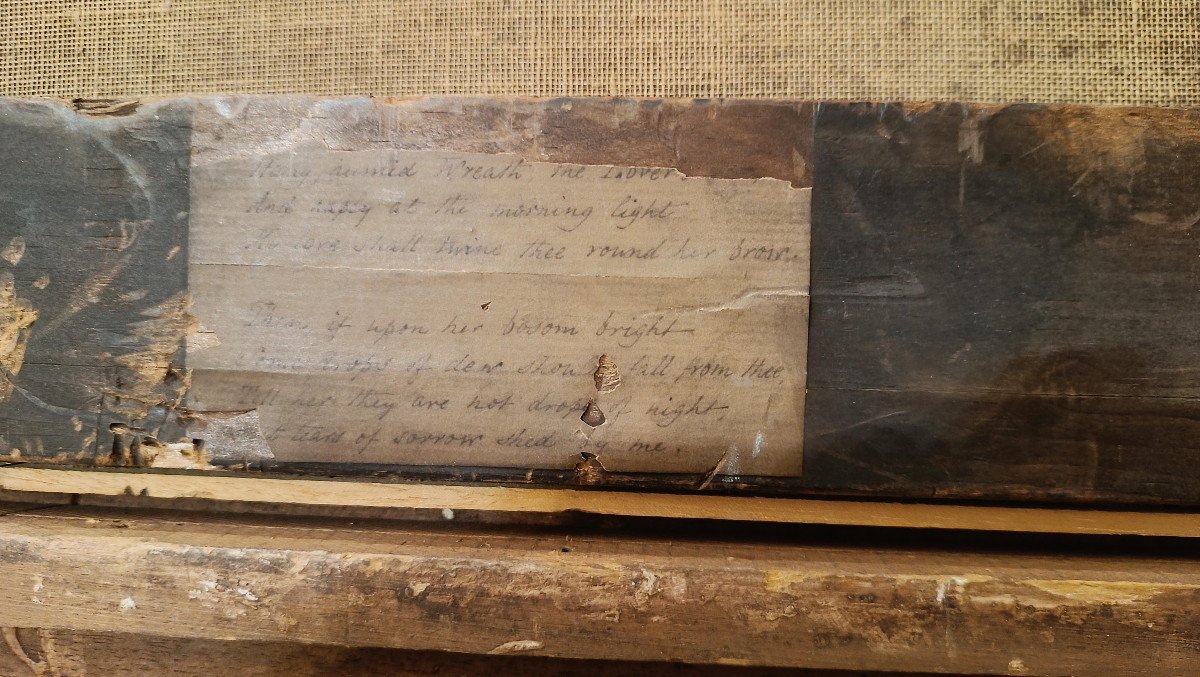 Wreath the Lover
And at the morning light
love shall twine thee round her brow.
Then if upon her bosom bright
drops of dew fall from thee,
Tell her they are not drops of night,
tears of sorrow shed by me.